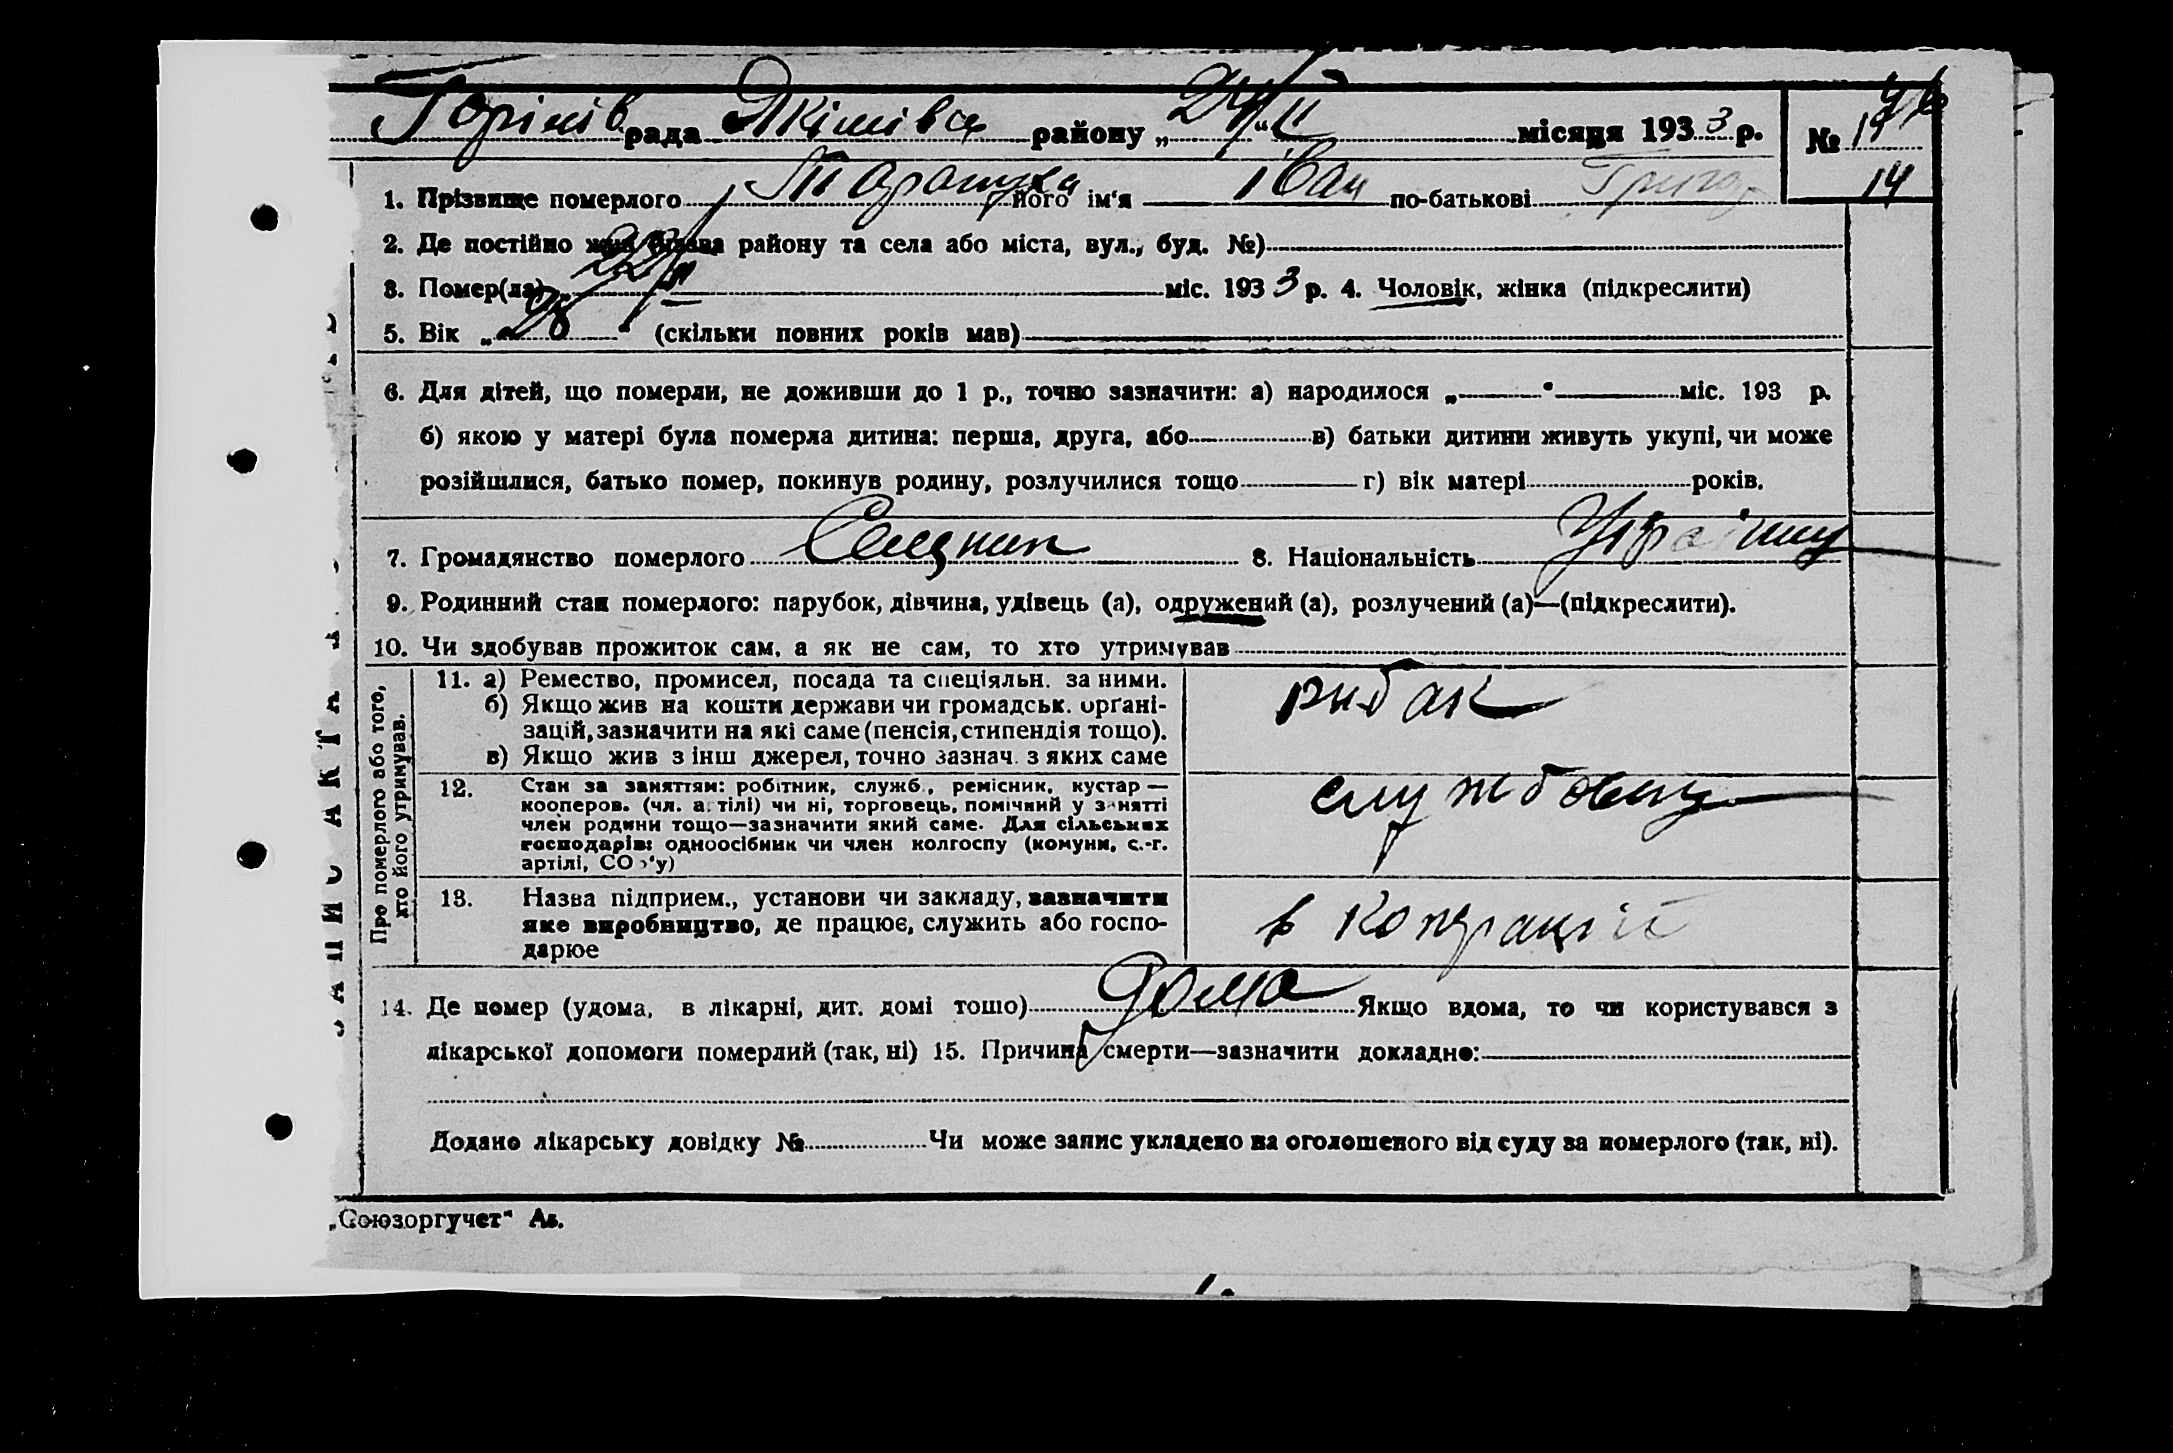 Горінів рада Якімівса району „24/ІІ“ місяця 1933 р. № 14
14
1. Прізвище померлого Тарануха його ім‘я Іван по-батькові Григо
2. Де постійно району та села або міста, вул., буд. №)
3. Помер(ла) 22/ІІ міс. 1933 р. 4. Чоловік, жінка (підкреслити)
5. Вік „28“ (скільки повних років мав)
6. Для дітей, що померли, не доживши до 1 р., точно зазначити: а) народилося „ “ міс. 193 р.
б) якою у матері була померла дитина: перша, друга, або в) батьки дитини живуть укупі, чи може
розійшлися, батько помер, покинув родину, розлучилися тощо г) вік матері років.
7. Громадянство померлого Селцнин 8. Національність Україниц
9. Родинний стан померлого: парубок, дівчина, удівець (а), одружений (а), розлучений (а)—(підкреслити).
10. Чи здобував прожиток сам, а як не сам, то хто утримував
ЗАПИС АКТА
Про померлого або того,
хто його утримував.
11. а) Ремество, промисел, посада та спеціяльн. за ними.
б) Якщо жив на кошти держави чи громадськ. орґані-
зацій, зазначити на які саме (пенсія, стипендія тощо).
в) Якщо жив з інш джерел, точно зазнач. з яких саме
рибак
12. Стан за заняттям: робітник, служб., ремісник, кустар —
кооперов. (чл. артілі) чи ні, торговець, помічний у занятті
член родини тощо—зазначити який саме. Для сільських
господарів: одноосібник чи член колгоспу (комуни, с.-г.
артілі, СО у)
службовец
13. Назва підприєм., установи чи закладу, зазначити
яке виробництво, де працює, служить або госпо-
дарює
в Копераций
14. Де помер (удома, в лікарні, дит. домі тощо) Дома Якщо вдома, то чи користувався з
лікарської допомоги померлий (так, ні) 15. Причина смерти—зазначити докладно:
Додано лікарську довідку № Чи може запис укладено на оголошеного від суду за померлого (так, ні).
„Союзоргучет“ Ав.